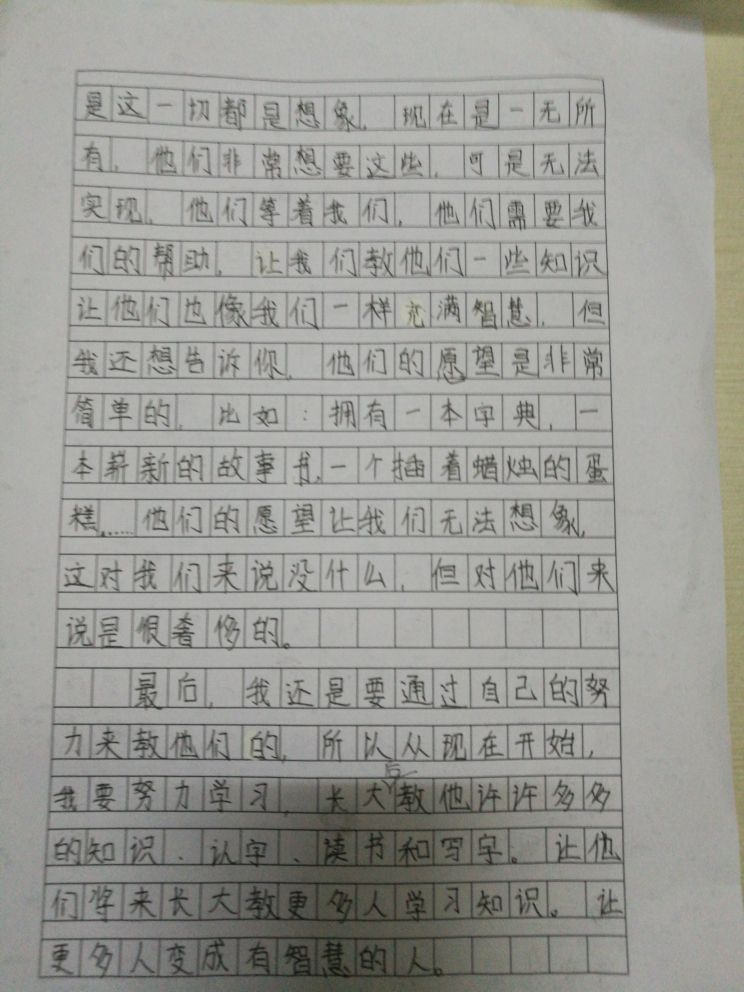 是这一切都是想象，现在是一无所
有，他们非常想要这些，可是无法
实现，他们等着我们，他们需要我
们的帮助，让我们教他们一些知识
让他们也像我们一样充满智慧，但
我还想告诉你，他们的愿望是非常
简单的，比如：拥有一本字典，一
本薪新的故事书，一个插着蜡烛的蛋
糕……他们的愿望让我们无法想象，
这对我们来说没什么，但对他们来
说是很奢侈的。
最后，我还是要通过自己的努
力来教他们的，所以从现在开始，
我要努力学习，长大后教他许许多多
的知识、认字、读书和写字。让他
们将来长大教更多人学习知识。让
更多人变成有智慧的人。